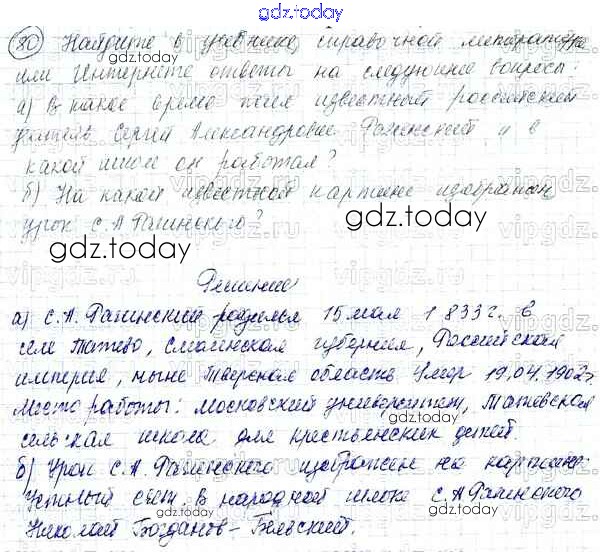 gdz.today
80) Найдите в учебнике, справочной литературе
или Интернете ответы на следующие вопросы:
а) В какое время жил известный российский
учитель Сергей Александрович Рачинский и в
какой школе он работал?
б) На какой известной картине изображён
урок С.А Рачинского?
gdz.today
gdz.today
Решение
а) С.А. Рачинский родился 15 мая 1833 г. в
селе Татево, Смоленская губерния, Российская
империя, ныне Тверская область Умер 19.04.1902г.
Место работы: Московский университет, Татевская
сельская школа для крестьянских детей.
б) Урок С.А. Рачинского изображен на картине
Устный счет, в народной школе С.А Рачинского
Николай Богданов-Бельский.
gdz.today
gdz.today